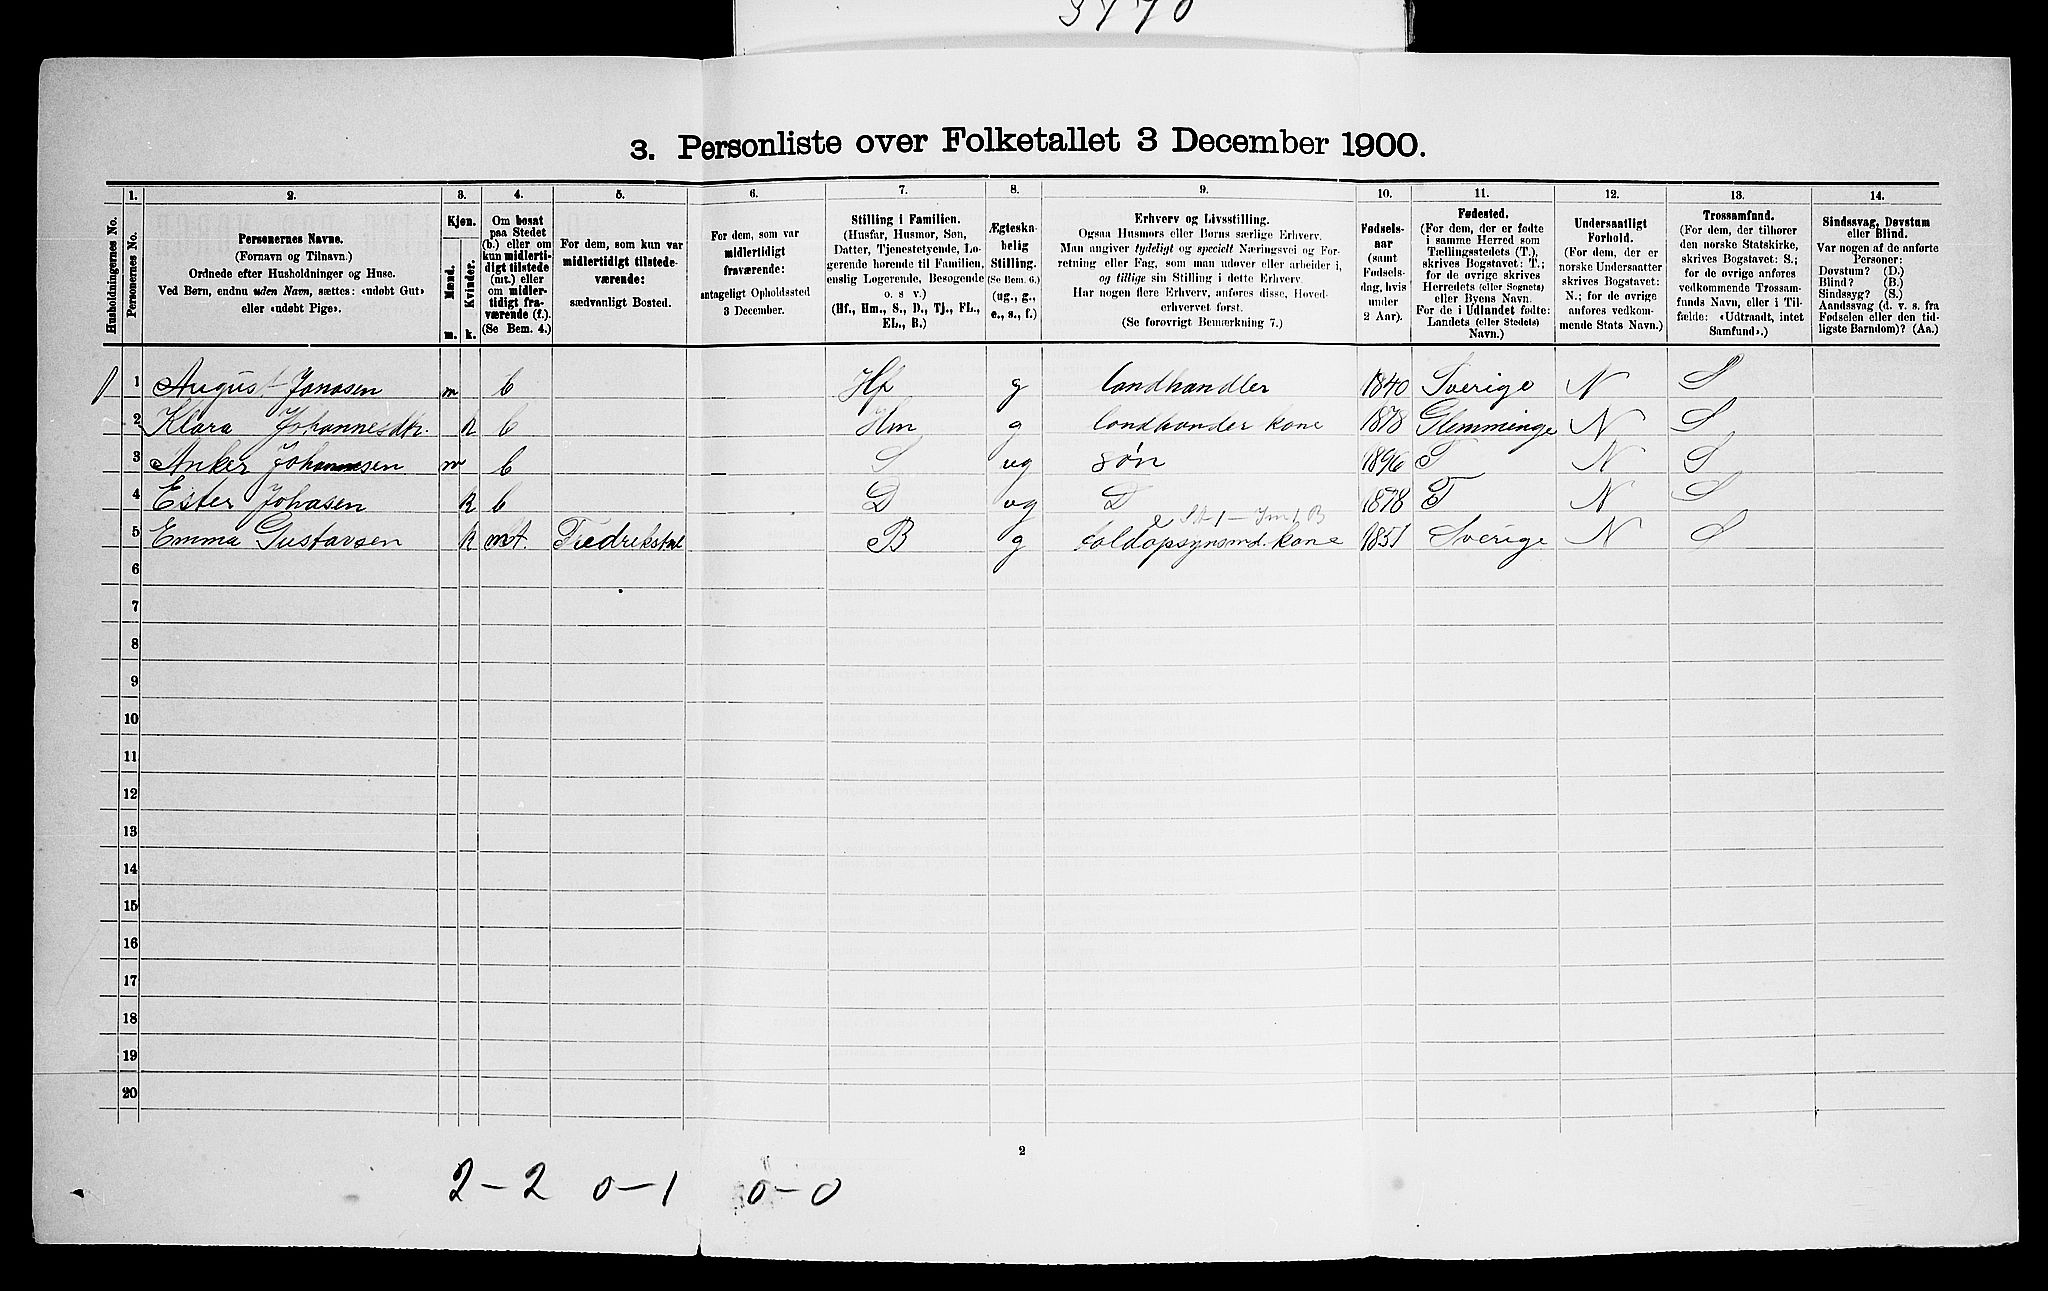 3. Personliste over Folketallet 3 December 1900.
1. 2. 3. 4. 5. 6. 7. 8. 9. 10. 11. 12. 13. 14.
Husholdningernes No.
Personernes No.
Personernes Navne.
(Fornavn og Tilnavn.)
Ordnede efter Husholdninger og Huse.
Ved Børn, endnu uden Navn, sættes: «udøbt Gut»
eller «udøbt Pige».
Kjøn.
Mænd.
Kvinder.
m. k.
Om bosat
paa Stedet
(b.) eller om
kun midlerti-
digt tilstede
(mt.) eller
om midler-
tidigt fra-
værende (f.).
(Se Bem. 4.)
For dem, som kun var
midlertidigt tilstede-
værende:
sædvanligt Bosted.
For dem, som var
midlertidigt
fraværende:
antageligt Opholdssted
3 December.
Stilling i Familien.
(Husfar, Husmor, Søn,
Datter, Tjenestetyende, Lo-
gerende hørende til Familien,
enslig Logerende, Besøgende
o. s v.)
(Hf., Hm., S., D., Tj., FL.,
EL., B.)
Ægteska-
belig
Stilling.
(Se Bem. 6.)
(ug., g.,
e., s., f.)
Erhverv og Livsstilling.
Ogsaa Husmors eller Børns særlige Erhverv.
Man angiver tydeligt og specielt Næringsvei og For-
retning eller Fag, som man udøver eller arbeider i,
og tillige sin Stilling i dette Erhverv.
Har nogen flere Erhverv, anføres disse, Hoved-
erhvervet først.
(Se forøvrigt Bemærkning 7.)
Fødsels-
aar
(samt
Fødsels-
dag, hvis
under
2 Aar).
Fødested.
(For dem, der er fødte
i samme Herred som
Tællingsstedets (T.),
skrives Bogstavet: T.;
for de øvrige skrives
Herredets (eller Sognets)
eller Byens Navn.
For de i Udlandet fødte:
Landets (eller Stedets)
Navn.)
Undersaatligt
Forhold.
(For dem, der er
norske Undersaatter
skrives Bogstavet:
N.; for de øvrige
anføres vedkom-
mende Stats Navn.)
Trossamfund.
(For dem, der tilhører
den norske Statskirke,
skrives Bogstavet: S.;
for de øvrige anføres
vedkommende Trossam-
funds Navn, eller i Til-
fælde: «Udtraadt, intet
Samfund».)
Sindssvag, Døvstum
eller Blind.
Var nogen af de anførte
Personer:
Døvstum? (D.)
Blind? (B.)
Sindssyg? (S.)
Aandssvag (d. v. s. fra
Fødselen eller den tid-
ligste Barndom)? (Aa.)
1 August Jonasen m b Hf g landhandler 1840 Sverige N S
2 Klara Johannesdtr. k b Hm g landhander kone 1878 Glemminge N S
3 Anker Johannesen m b S ug søn 1896 T N S
4 Ester Johasen k b D ug D 1878 T N S
5 Emma Gustavsen k mt. Fredrikstad B g toldopsynsmd. kone 1851 Sverige N S
6
7
8
9
10
11
12
13
14
15
16
17
18
19
20
2
2-2 0-1 0-0